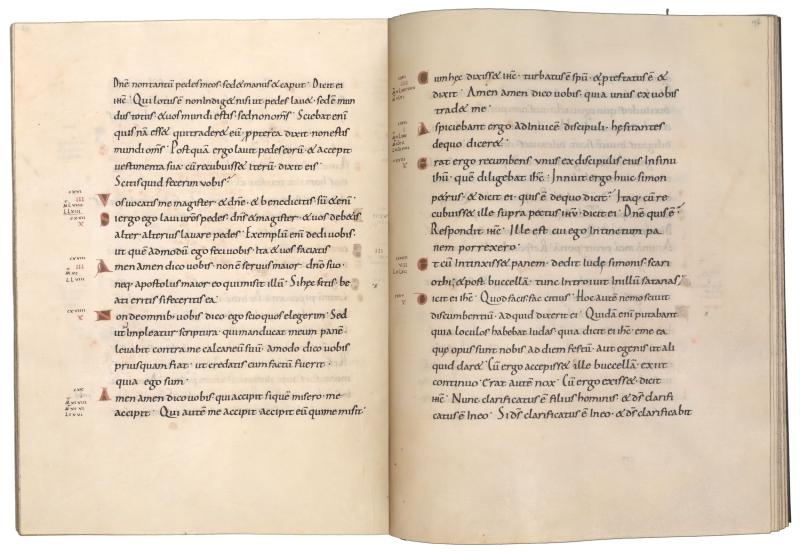 Dnē non tantū pedes meos· sed & manus & caput· Dicit ei
ihc· Qui lotus ē non indig& nisi ut pedes lau&· sed ē mun
dus totus· & uos mundi estis sed non oms· Sciebat enī
quis nā ess& qui trader& eū· ppterea dixit non estis
mundi oms· Post quā ergo lauit pedes eorū· & accepit
uestimenta sua· cū recubuiss& iterū· dixit eis·
Scitis quid fecerim uobis·
Vos uocatis me magister & dnē· & benedicitis· sū & enī·
Si ergo ego laui uros pedes· dns & magister· & uos deb&is
alter alterius lauare pedes· Exemplū enī dedi uobis·
ut quē admodū ego feci uobis· Ita & uos faciatis·
Amen amen dico uobis· non ē seruus maior dno suo·
neq· apostolus maior eo qui misit illū· Si hęc scitis· be
ati eritis si feceritis ea·
Non de omnib· uobis dico· ego scio quos elegerim· Sed
ut impleatur scriptura· qui manducat meum panē·
leuabit contra me calcaneū suū· Amodo dico uobis
priusquam fiat· ut credatis cum factū fuerit·
quia ego sum·
Amen amen dico uobis· qui accipit si quē misero· me
accipit· Qui autē me accipit· accipit eū qui me misit·
Cum hęc dixiss& ihc· turbatus ē spū· & ptestatus ē &
dixit· Amen amen dico uobis· quia unus ex uobis
trad& me·
Aspiciebant ergo ad inuicē discipuli· hęsitantes
de quo dicer&·
Erat ergo recumbens· unus ex discipulis eius in sinu
ihū· quē diligebat ihc· Innuit ergo huic simon
petrus· & dicit ei· quis ē de quo dicit· Itaq· cū re
cubuiss& ille supra pectus ihū· dicit ei· Dnē quis ē·
Respondit ihc· Ille est cui ego intinctum pa
nem porrexero·
Et cū intinxiss& panem· dedit iudę simonis scari
othi· & post buccellā· tunc introiuit in illū satanas·
Dicit ei ihc· Quod facis fac citius· Hoc autē nemo sciuit
discumbentiū· ad quid dixerit ei· Quidā enī putabant
quia loculos habebat iudas· quia dicit ei ihc· eme ea
quę opus sunt nobis ad diem festū· aut egenis ut ali
quid dar&· Cū ergo accepiss& ille buccellā· exiit
continuo· Erat autē nox· Cū ergo exiss&· dicit
ihc· Nunc clarificatus ē filius hominis· & ds clarifi
catus ē in eo· Si ds clarificatus ē in eo· & ds clarificabit